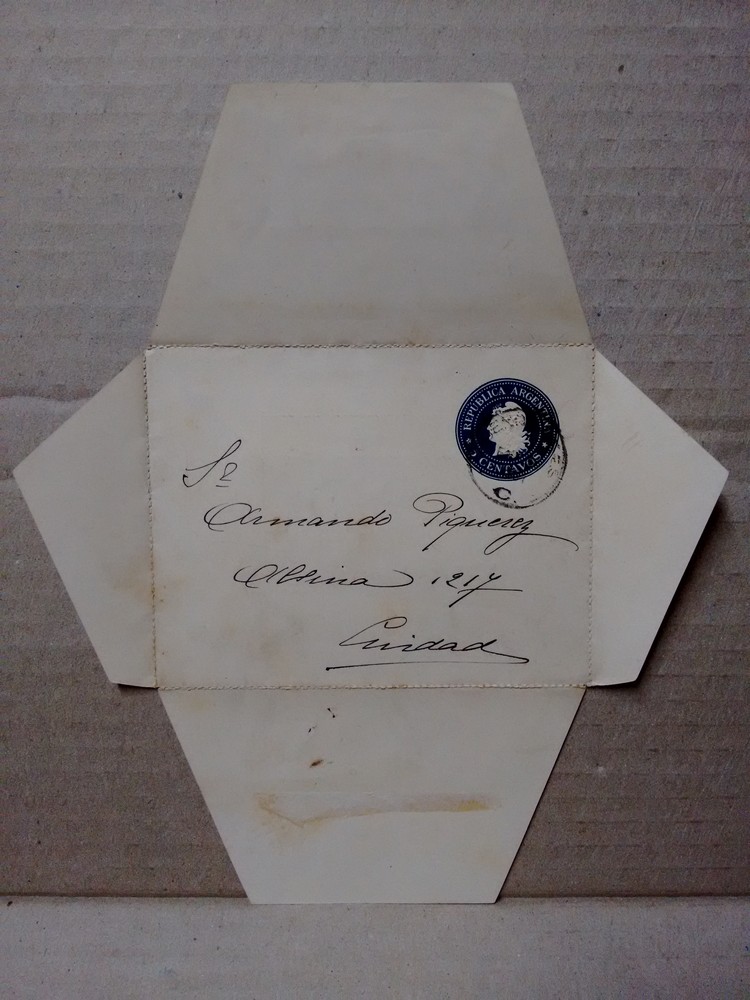 REPUBLICA ARGENTINA
CENTAVOS
C.
Sr
Armando Piquerez
Alsina 1217
Ciudad